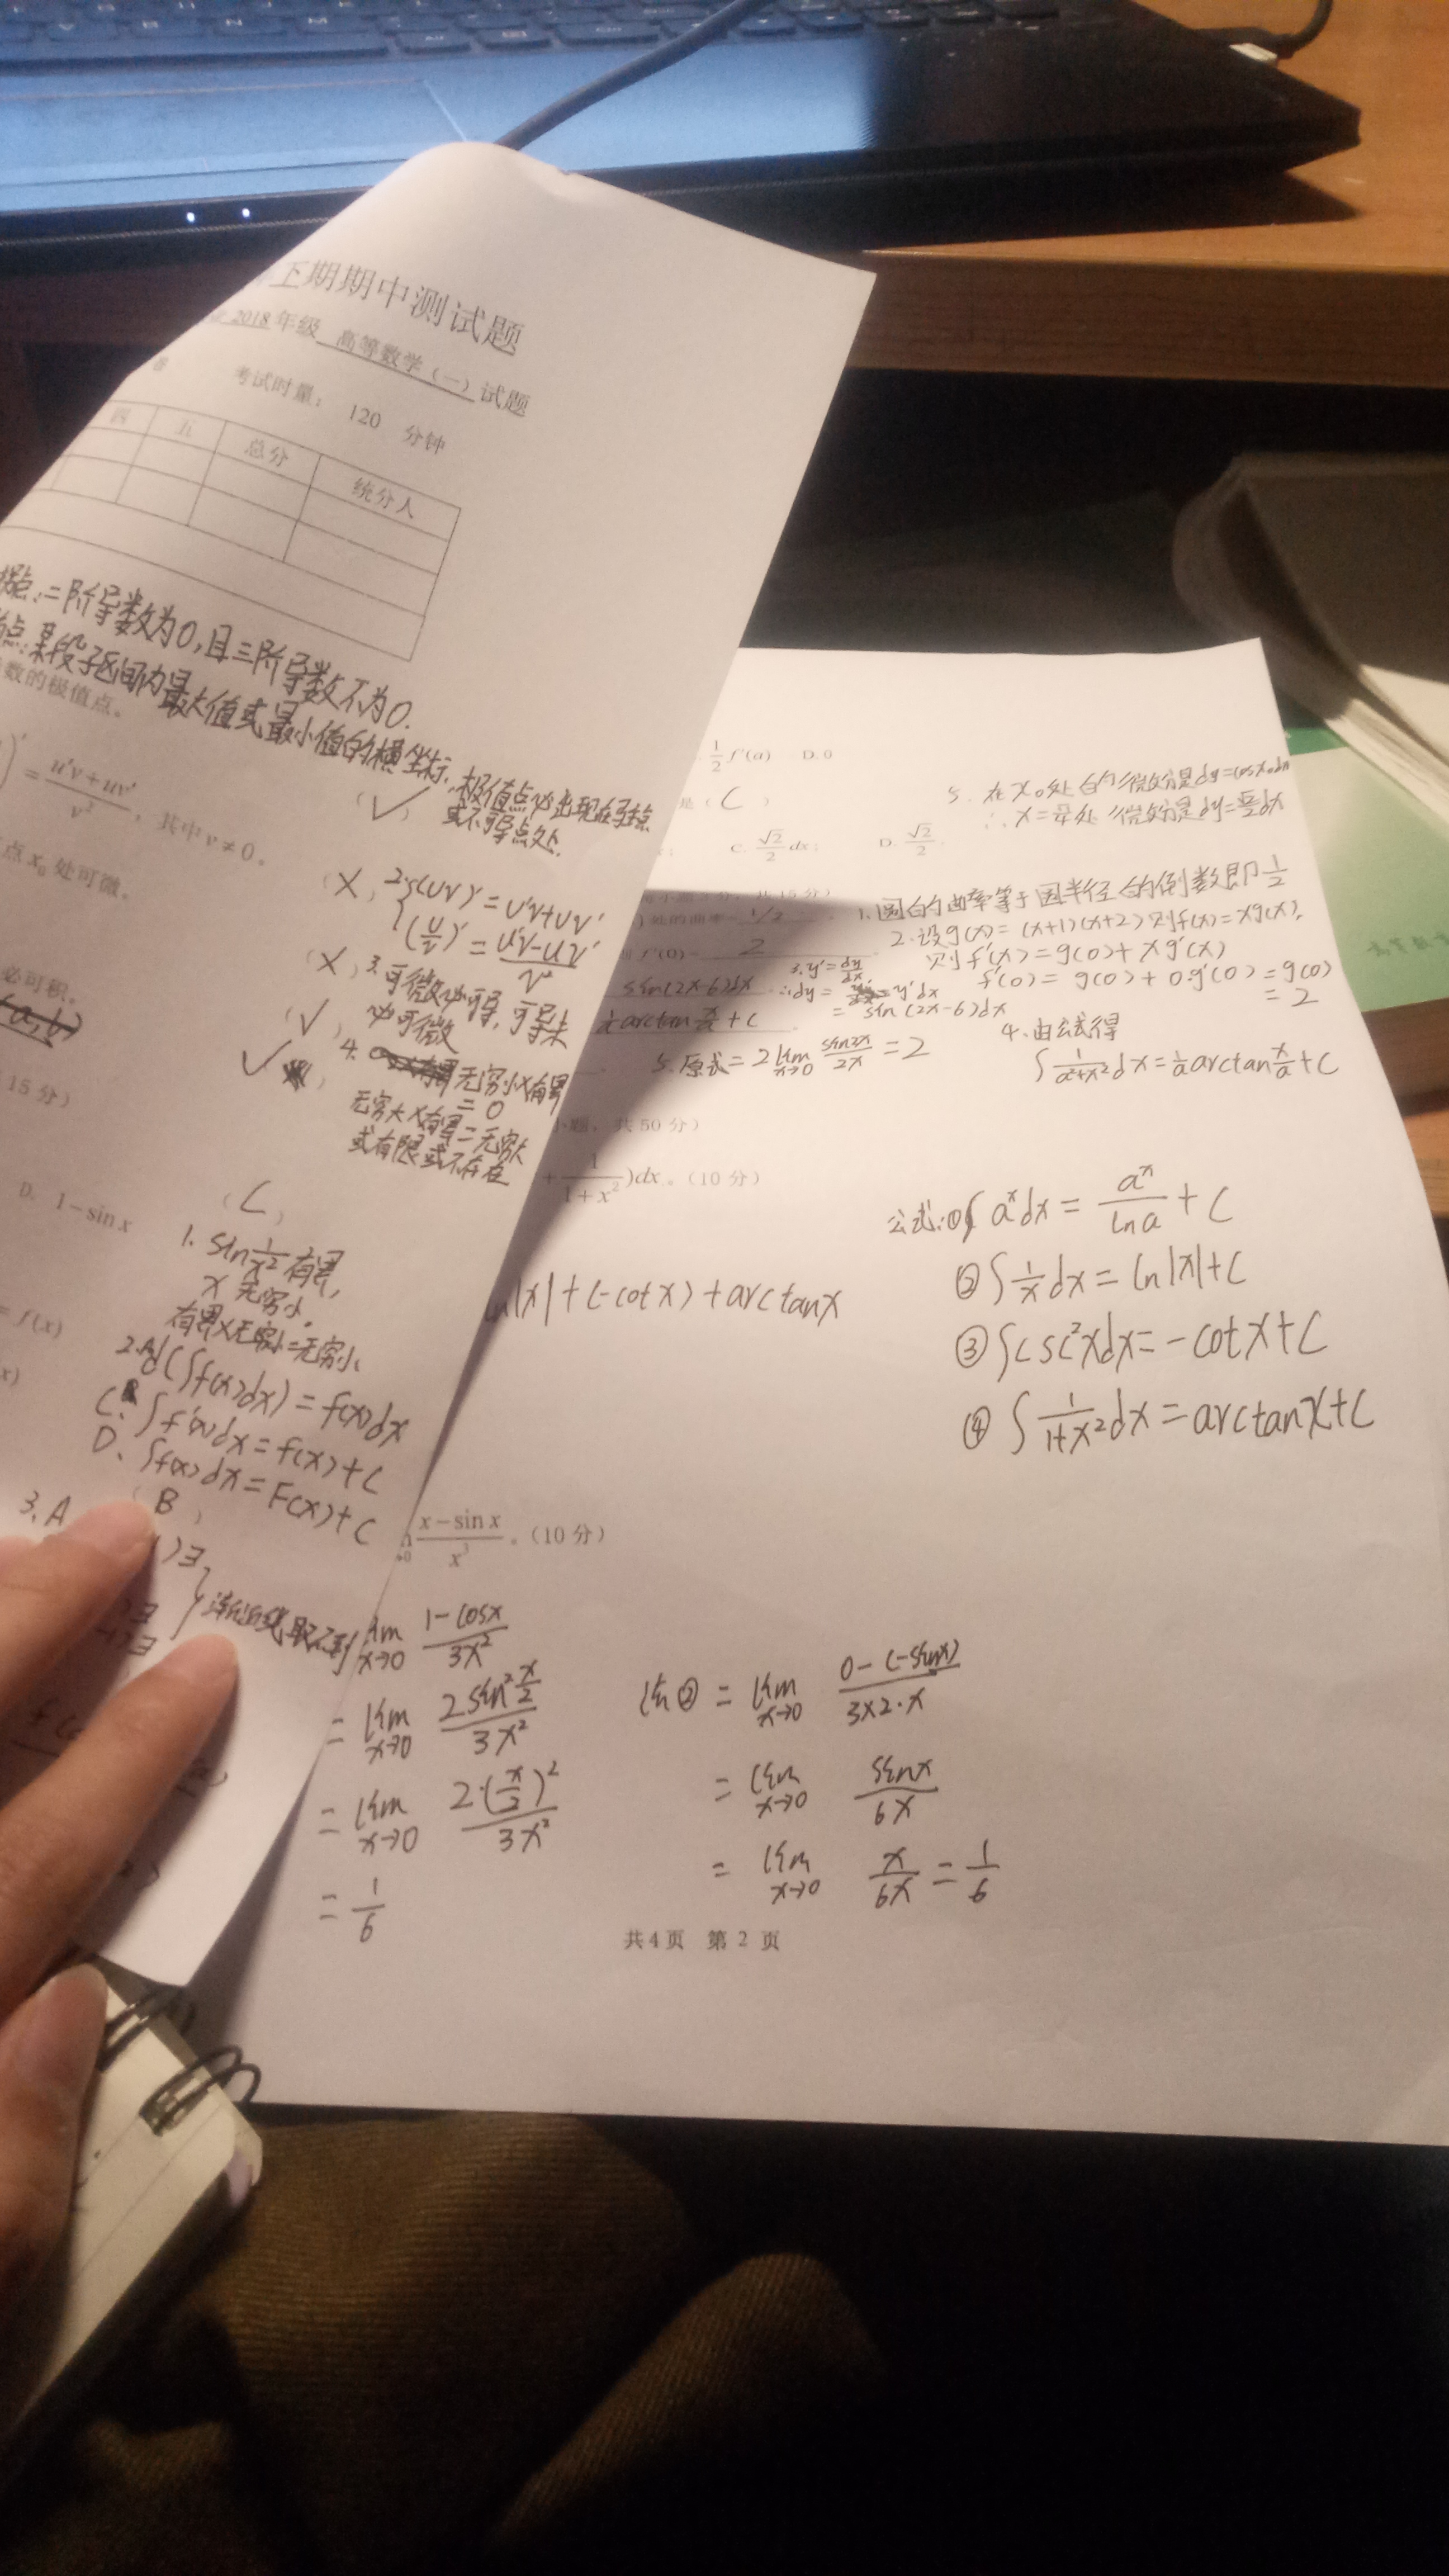 下期期中测试题
2018 年级 高等数学（一）试题
考试时量： 120 分钟
四 五 总分 统分人
点:二阶导数为0,且三阶导数不为0.
点:某段子区间内最大值或最小值的横坐标,极值点必出现在驻点
或不可导点处.
数的极值点。
(√)
= (u'v+uv')/v², 其中 v≠0。
(X) 2.{(uv)'=u'v+uv'
(u/v)'=(u'v-uv')/v²
点 x₀ 处可微。
(X) 3.可微必可导,可导未
必可微
必可积。
(√)
4. 无穷小×有界
=0
无穷大×有界=无穷大
或有限或不存在
√
15 分）
(C)
D. 1-sin x
1. sin 1/x² 有界,
x 无穷小.
有界×无穷小=无穷小
= f(x)
x)
2. d(∫f(x)dx)=f(x)dx
C. ∫f'(x)dx=f(x)+C
D. ∫f(x)dx=F(x)+C
3. A (B)
渐近线取不到
1/2 f'(a) D. 0
是（C）
C. √2/2 dx; D. √2/2
5. 在x₀处的微分是dy=cosx₀dx
处的曲率 1/2
f'(0)= 2
sin(2x-6)dx
1/a arctan x/a + C
1.圆的曲率等于圆半径的倒数即1/2
2.设g(x)=(x+1)(x+2)则f(x)=xg(x),
则f'(x)=g(0)+xg'(x)
f'(0)=g(0)+0·g'(0)=g(0)
=2
3.y'=dy/dx
∴dy= =y'dx
=sin(2x-6)dx
4.由公式得
∫1/(a²+x²)dx=1/a arctan x/a+C
5.原式=2 lim x→0 sin2x/2x=2
小题，共 50 分）
+ 1/(1+x²))dx。（10 分）
ln|x|+(-cotx)+arctanx
公式:①∫aˣdx=aˣ/lna+C
②∫1/x dx=ln|x|+C
③∫csc²xdx=-cotx+C
④∫1/(1+x²)dx=arctanx+C
(x-sin x)/x³。（10 分）
lim x→0 (1-cosx)/3x²
=lim x→0 2sin² x/2 / 3x²
=lim x→0 2·(x/2)²/3x²
=1/6
法②=lim x→0 (0-(-sinx))/(3×2·x)
=lim x→0 sinx/6x
=lim x→0 x/6x=1/6
共 4 页 第 2 页